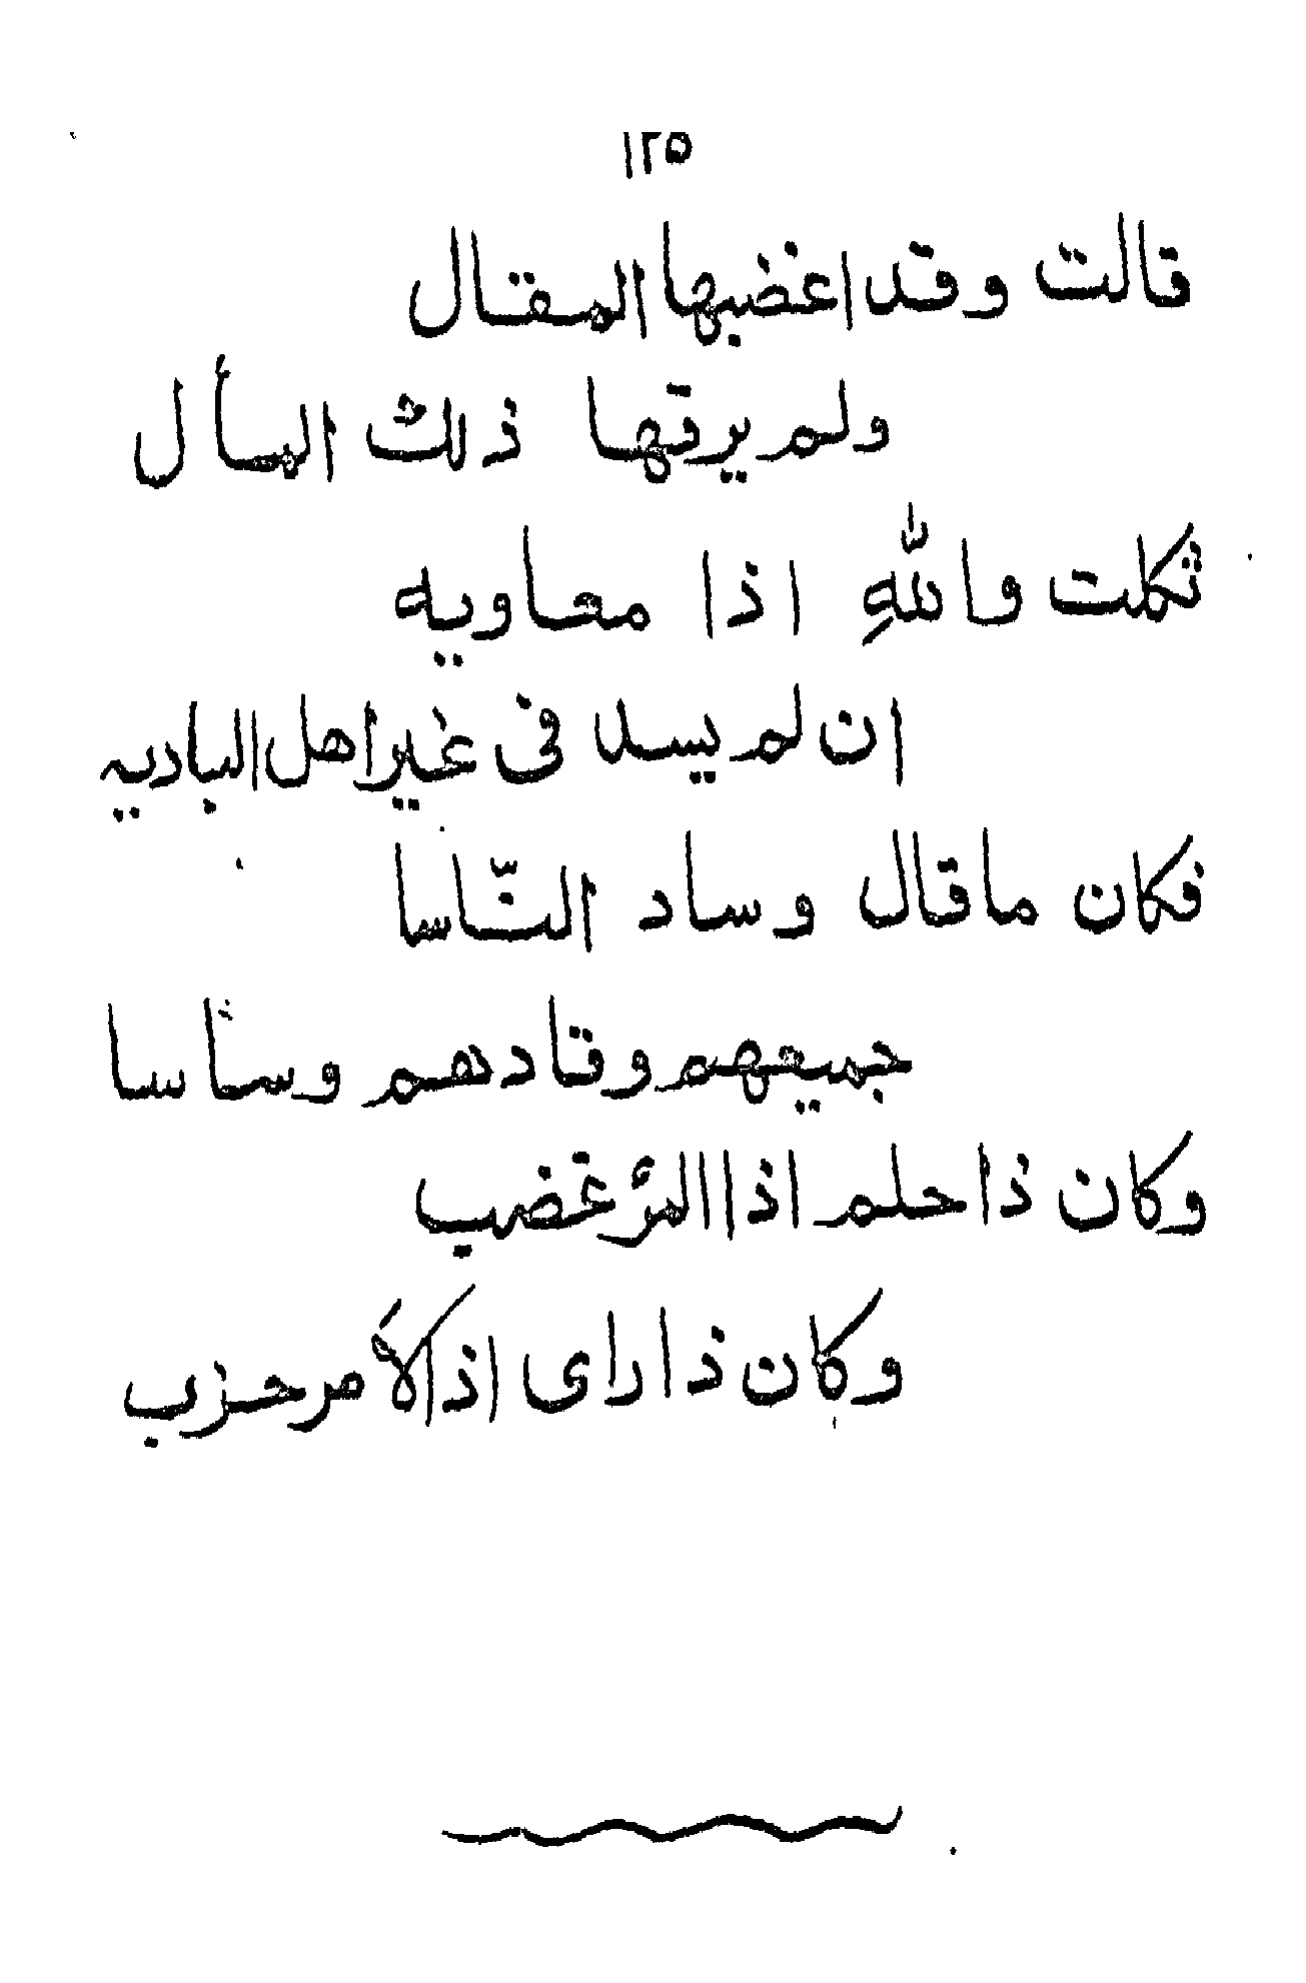 ١٢٥
قالت وقد اغضبها المقال
ولم يرقها ذلك المسأل
ثكلت واللهِ اذا معاويه
ان لم يسد فى غير اهل الباديه
فكان ما قال وساد النّاسا
جميعهم وقادهم وساسا
وكان ذا حلم اذا المرْ غضب
وكان ذا راى اذا الأمر حزب